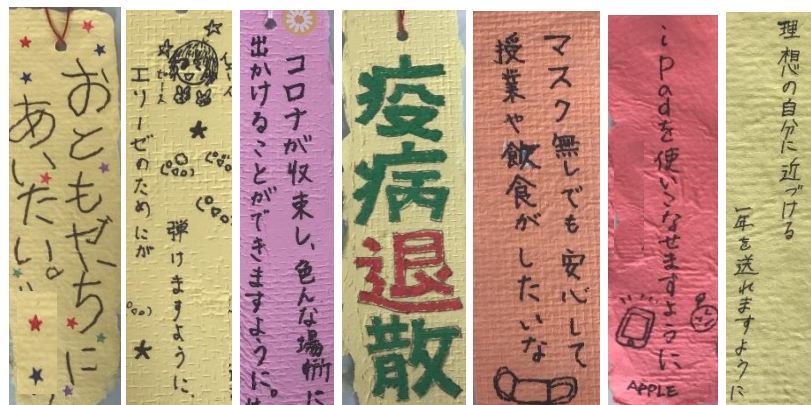 おともだちに
あいたい。
エリーゼのためにが
弾けますように、
コロナが収束し、色んな場所に
出かけることができますように。
疫病退散
マスク無しでも安心して
授業や飲食がしたいな
ipadを使いこなせますように
APPLE
理想の自分に近づける
一年を送れますように